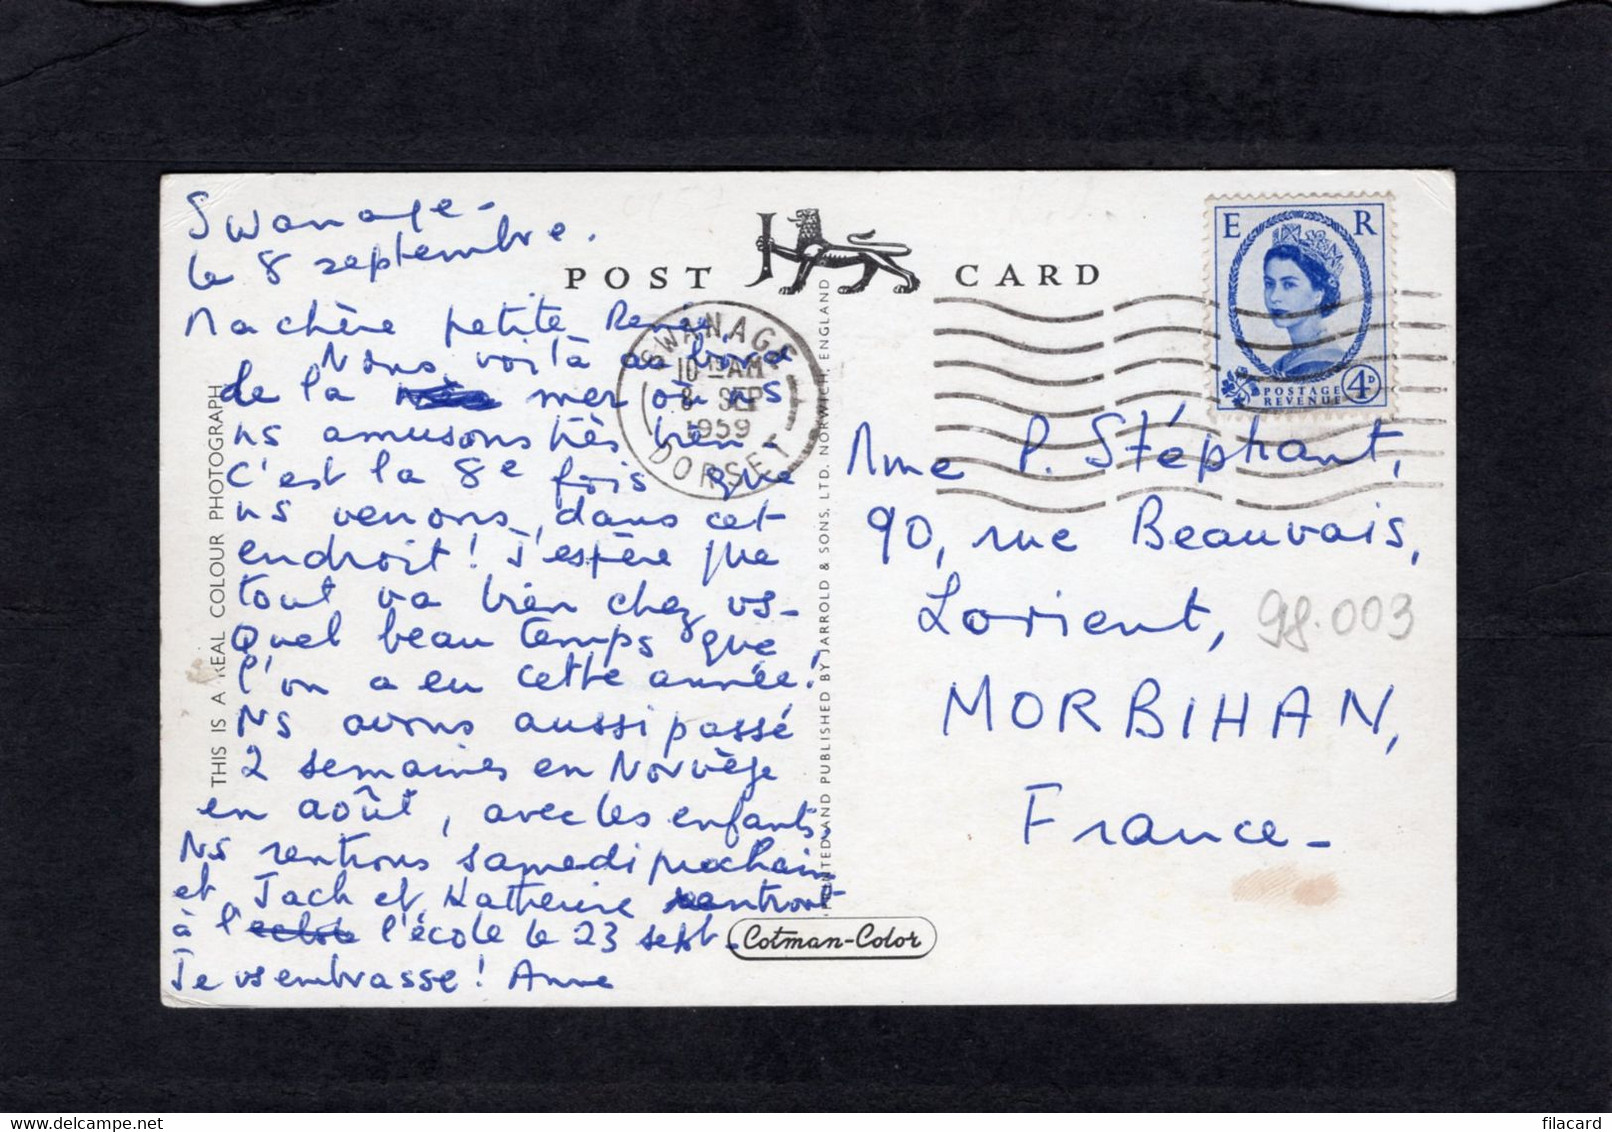 Swanage -
le 8 septembre.
Ma chère petite Renée
Nous voilà au bord
de la mer où ns
ns amusons très bien -
C'est la 8e fois que
ns venons dans cet
endroit ! J'espère que
tout va bien chez vs -
Quel beau temps que
l'on a eu cette année !
Ns avons aussi passé
2 semaines en Norvège
en août, avec les enfants.
Ns rentrons samedi prochain
et Jack et Katherine rentront
à l'école le 23 sept -
Je vs embrasse ! Anne
THIS IS A REAL COLOUR PHOTOGRAPH
POST CARD
J
SWANAGE
10 15 AM
8 SEP
1959
DORSET
PRINTED AND PUBLISHED BY JARROLD & SONS, LTD. NORWICH, ENGLAND
Cotman-Color
E R
POSTAGE
REVENUE
4D
Mme P. Stéphant,
90, rue Beauvais,
Lorient,
98.003
MORBIHAN,
France -
filacard